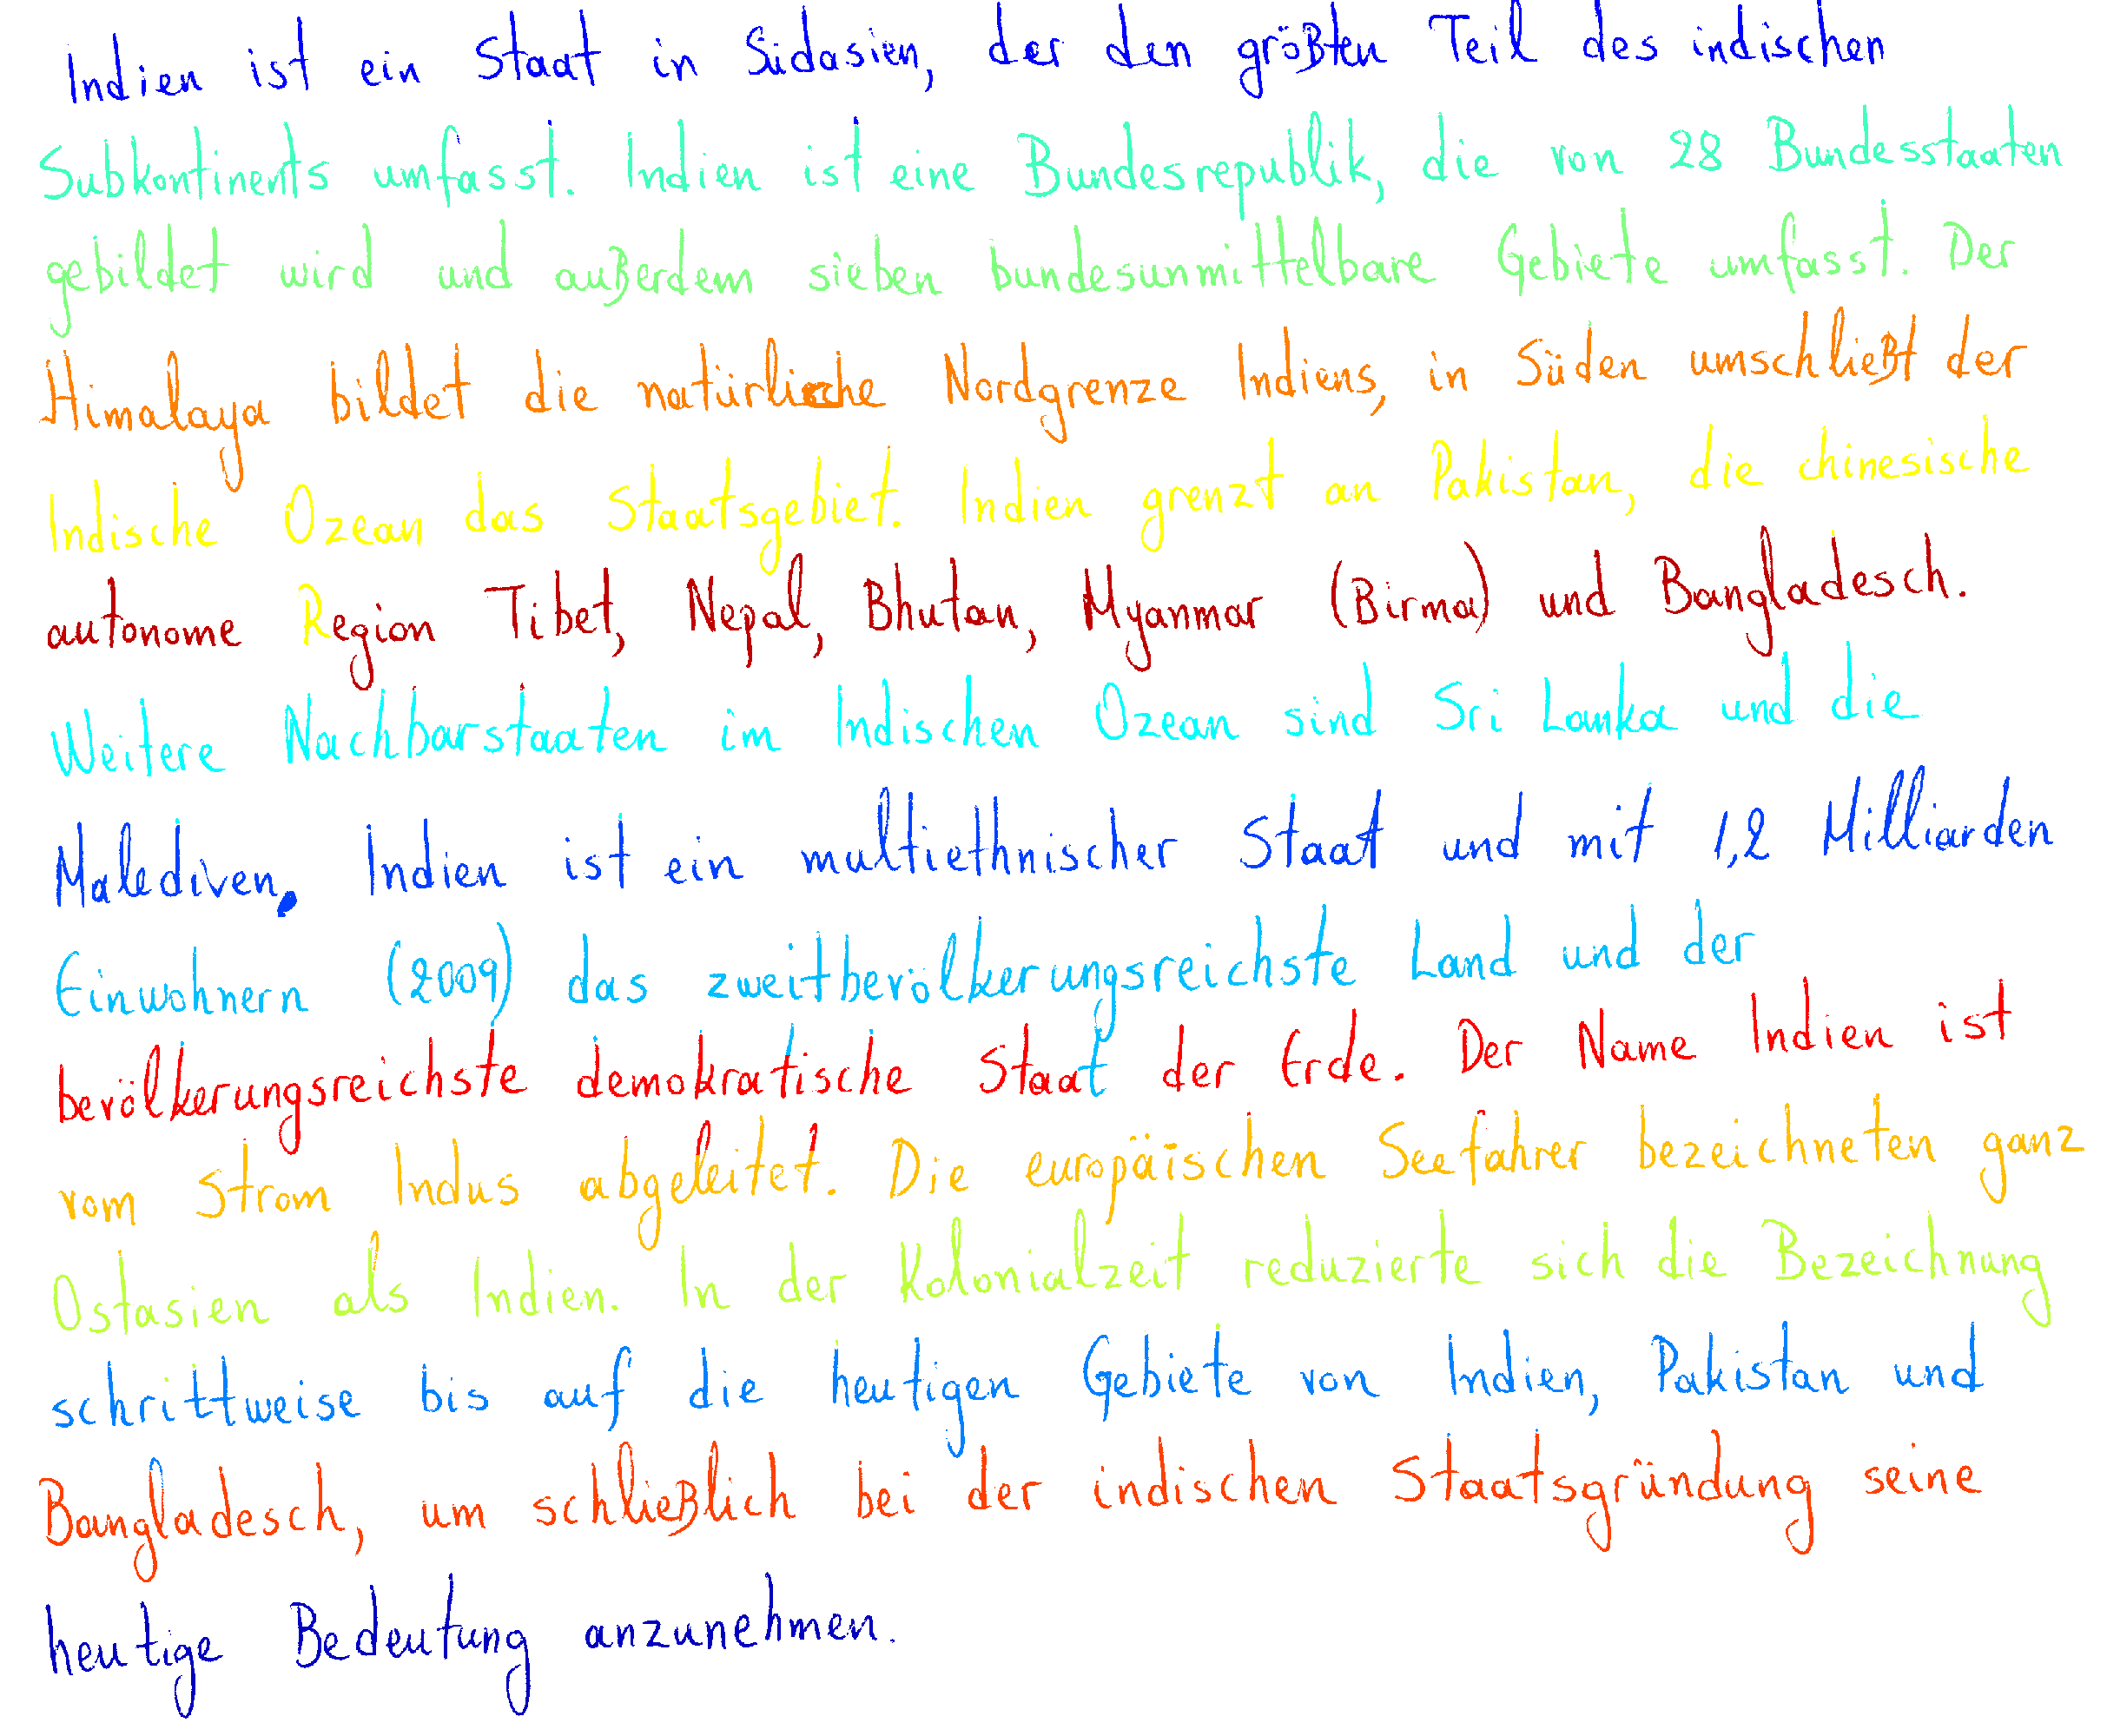 Indien ist ein Staat in Südasien, der den größten Teil des indischen
Subkontinents umfasst. Indien ist eine Bundesrepublik, die von 28 Bundesstaaten
gebildet wird und außerdem sieben bundesunmittelbare Gebiete umfasst. Der
Himalaya bildet die natürliche Nordgrenze Indiens, in Süden umschließt der
Indische Ozean das Staatsgebiet. Indien grenzt an Pakistan, die chinesische
autonome Region Tibet, Nepal, Bhutan, Myanmar (Birma) und Bangladesch.
Weitere Nachbarstaaten im Indischen Ozean sind Sri Lanka und die
Malediven. Indien ist ein multiethnischer Staat und mit 1,2 Milliarden
Einwohnern (2009) das zweitbevölkerungsreichste Land und der
bevölkerungsreichste demokratische Staat der Erde. Der Name Indien ist
vom Strom Indus abgeleitet. Die europäischen Seefahrer bezeichneten ganz
Ostasien als Indien. In der Kolonialzeit reduzierte sich die Bezeichnung
schrittweise bis auf die heutigen Gebiete von Indien, Pakistan und
Bangladesch, um schließlich bei der indischen Staatsgründung seine
heutige Bedeutung anzunehmen.